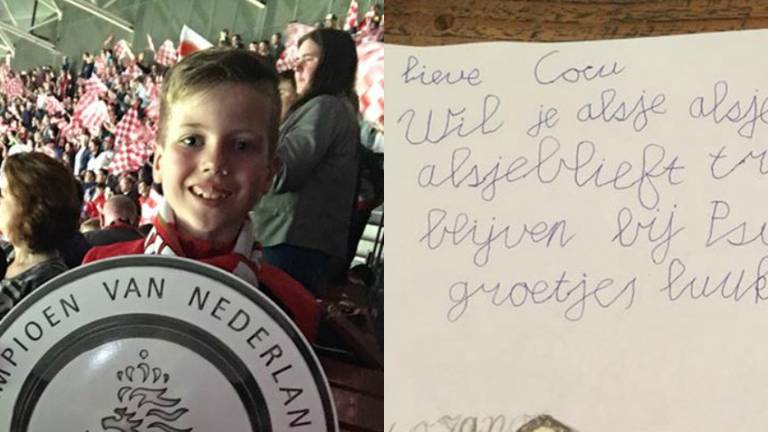 MPIOEN VAN NEDERLAN
lieve Cocu
Wil je alsje alsje
alsjeblieft tr
blijven bij Psv
groetjes luuk